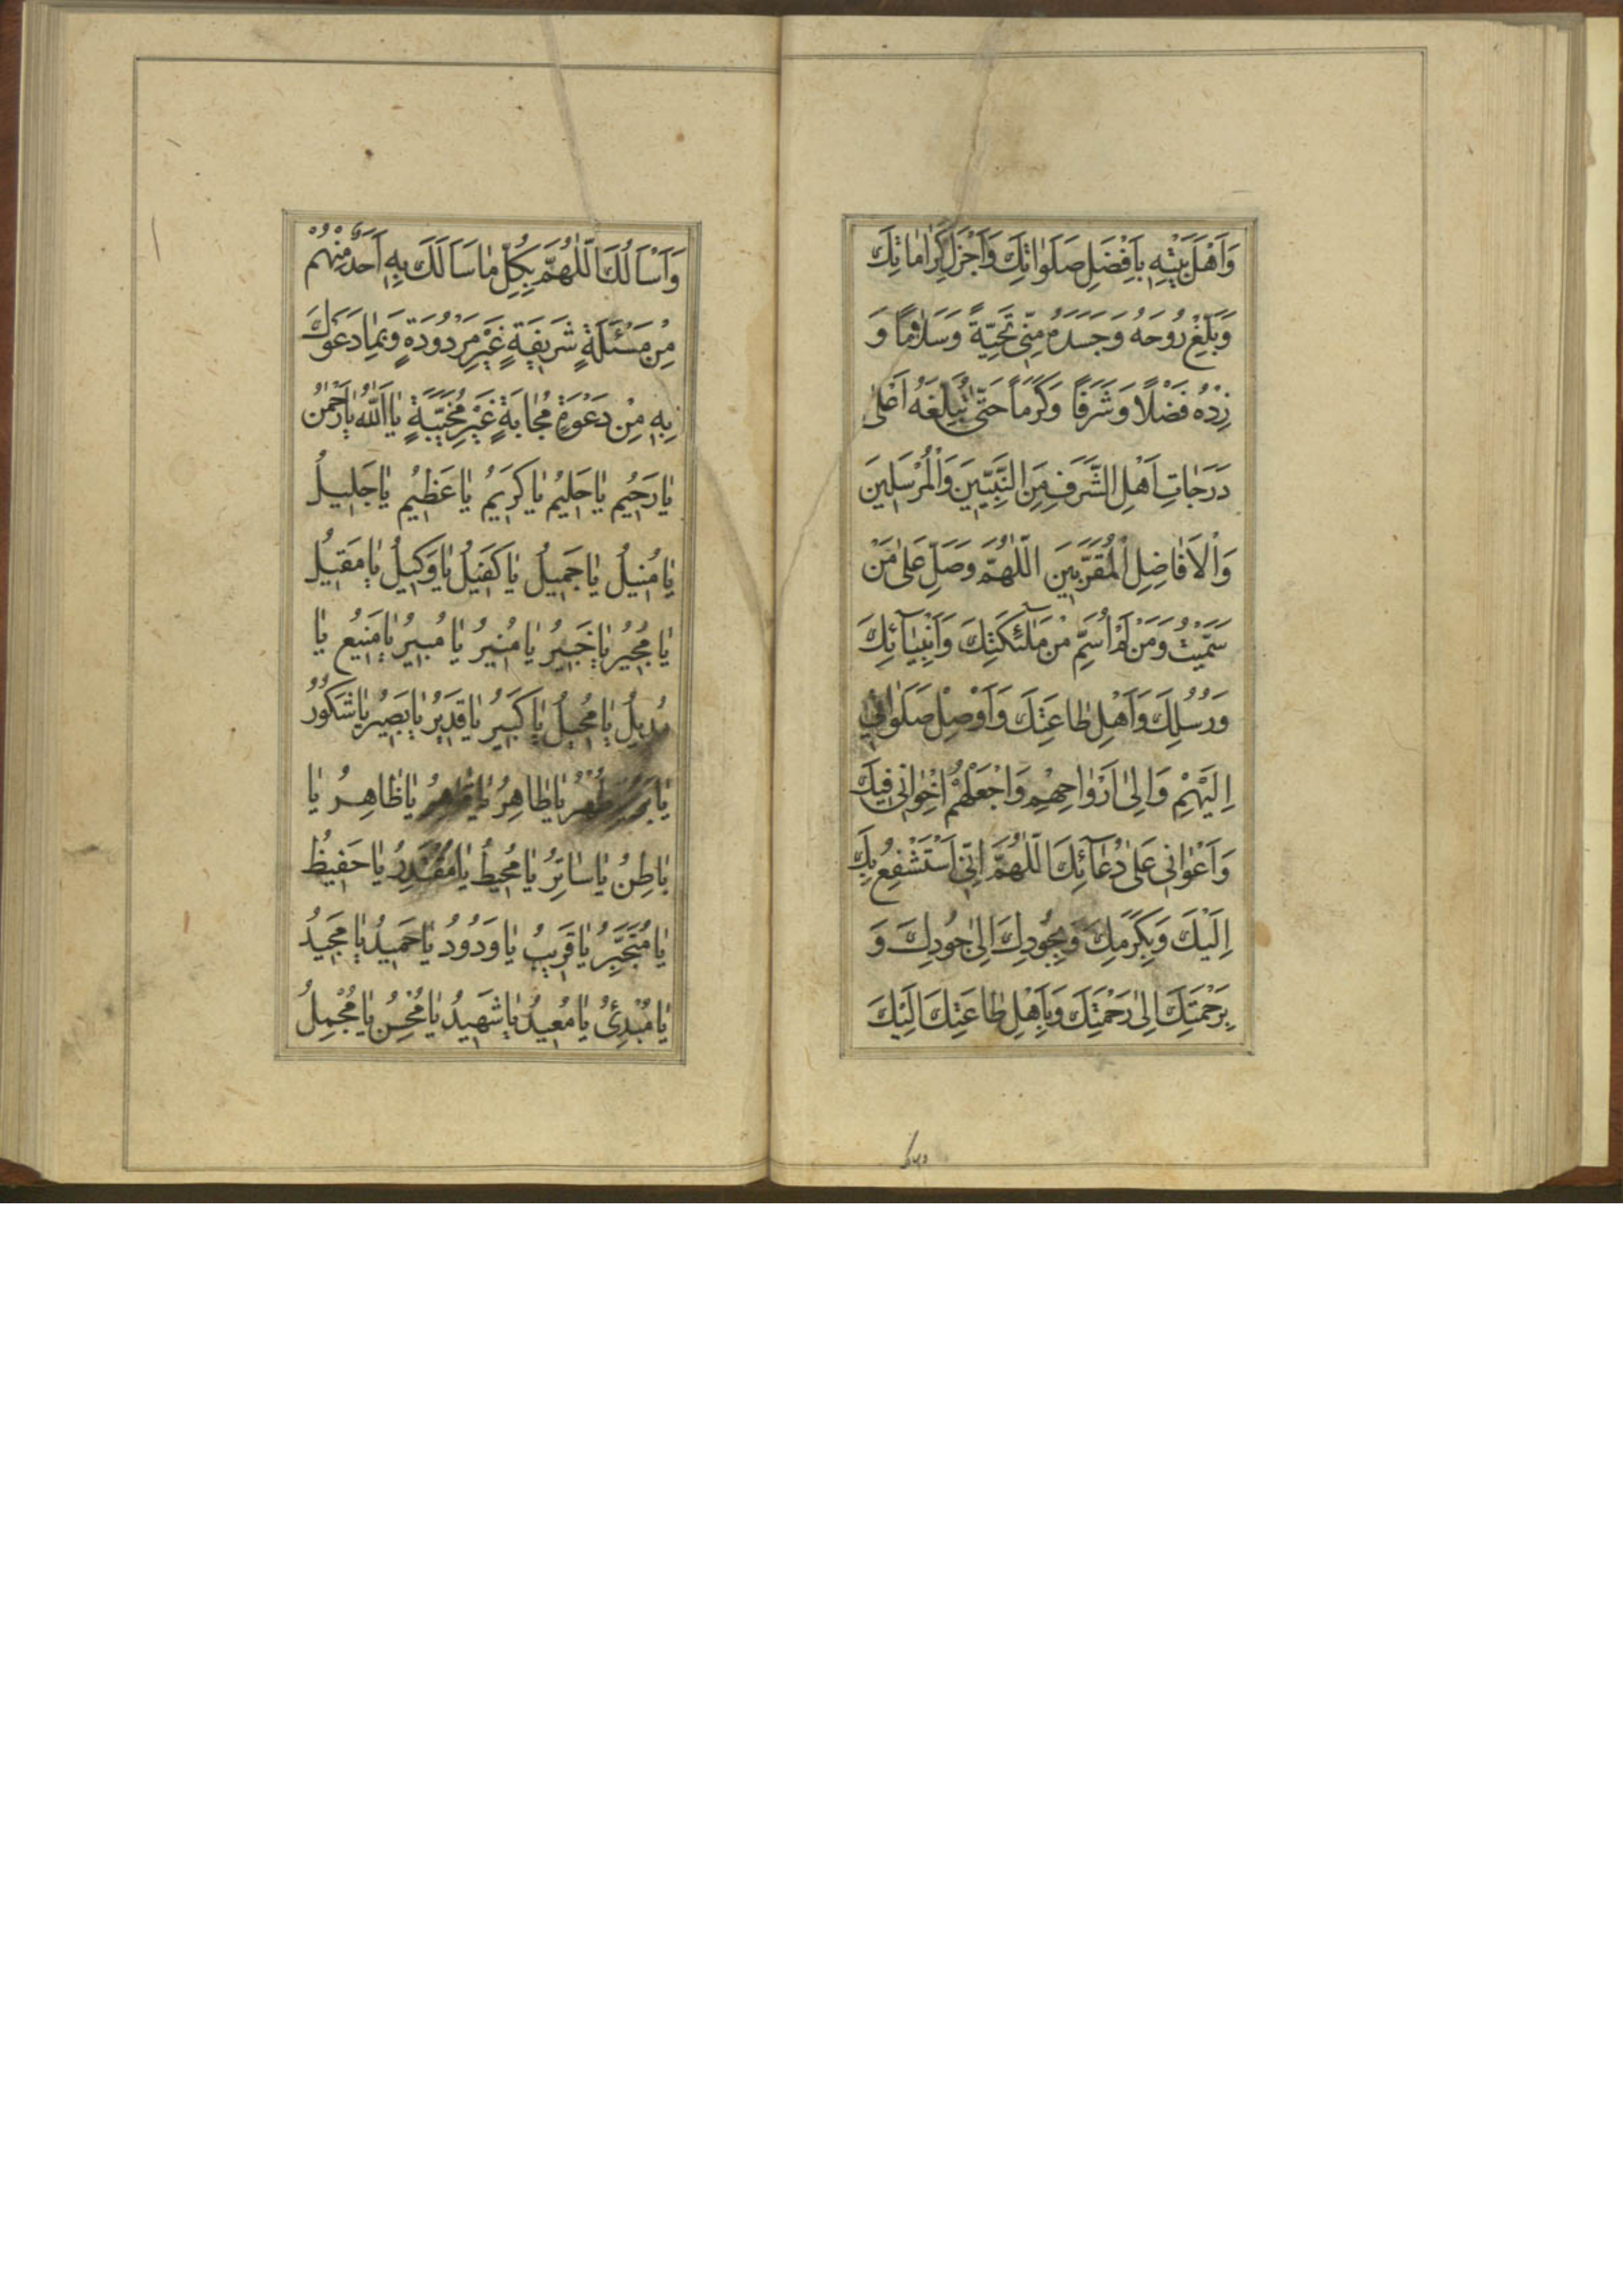 وَاَهْلَ بَيْتِهِ بِاَفْضَلِ صَلَوٰاتِكَ وَاَجْزَلِ كَرٰامٰاتِكَ
وَبَلِّغْ رُوحَهُ وَجَسَدَهُ مِنّٖى تَحِيَّةً وَسَلٰامًا وَ
زِدْهُ فَضْلًا وَشَرَفًا وَكَرَمًا حَتّٰى تُبَلِّغَهُ اَعْلٰى
دَرَجٰاتِ اَهْلِ الشَّرَفِ مِنَ النَّبِيّٖينَ وَالْمُرْسَلٖينَ
وَالْاَفٰاضِلِ الْمُقَرَّبٖينَ اَللّٰهُمَّ وَصَلِّ عَلٰى مَنْ
سَمَّيْتُ وَمَنْ لَمْ اُسَمِّ مِنْ مَلٰٓئِكَتِكَ وَاَنْبِيٰٓائِكَ
وَرُسُلِكَ وَاَهْلِ طٰاعَتِكَ وَاَوْصِلْ صَلَوٰاتٖى
اِلَيْهِمْ وَاِلٰى اَرْوٰاحِهِمْ وَاجْعَلْهُمْ اِخْوٰانٖى فٖيكَ
وَاَعْوٰانٖى عَلٰى دُعٰٓائِكَ اَللّٰهُمَّ اِنّٖى اَسْتَشْفِعُ بِكَ
اِلَيْكَ وَبِكَرَمِكَ وَبِجُودِكَ اِلٰى جُودِكَ وَ
بِرَحْمَتِكَ اِلٰى رَحْمَتِكَ وَبِاَهْلِ طٰاعَتِكَ اِلَيْكَ
وَاَسْاَلُكَ اللّٰهُمَّ بِكُلِّ مٰا سَاَلَكَ بِهٖ اَحَدٌ مِنْهُمْ
مِنْ مَسْئَلَةٍ شَرٖيفَةٍ غَيْرِ مَرْدُودَةٍ وَبِمٰا دَعَوْكَ
بِهٖ مِنْ دَعْوَةٍ مُجٰابَةٍ غَيْرِ مُخَيَّبَةٍ يٰا اَللّٰهُ يٰا رَحْمٰنُ
يٰا رَحٖيمُ يٰا حَلٖيمُ يٰا كَرٖيمُ يٰا عَظٖيمُ يٰا جَلٖيلُ
يٰا مُنٖيلُ يٰا جَمٖيلُ يٰا كَفٖيلُ يٰا وَكٖيلُ يٰا مُقٖيلُ
يٰا مُجٖيرُ يٰا خَبٖيرُ يٰا مُنٖيرُ يٰا مُبٖيرُ يٰا مَنٖيعُ يٰا
مُدٖيلُ يٰا مُحٖيلُ يٰا كَبٖيرُ يٰا قَدٖيرُ يٰا بَصٖيرُ يٰا شَكُورُ
يٰا بَرُّ يٰا طُهْرُ يٰا طٰاهِرُ يٰا قٰاهِرُ يٰا ظٰاهِرُ يٰا
بٰاطِنُ يٰا سٰاتِرُ يٰا مُحٖيطُ يٰا مُقْتَدِرُ يٰا حَفٖيظُ
يٰا مُتَجَبِّرُ يٰا قَرٖيبُ يٰا وَدُودُ يٰا حَمٖيدُ يٰا مَجٖيدُ
يٰا مُبْدِئُ يٰا مُعٖيدُ يٰا شَهٖيدُ يٰا مُحْسِنُ يٰا مُجْمِلُ